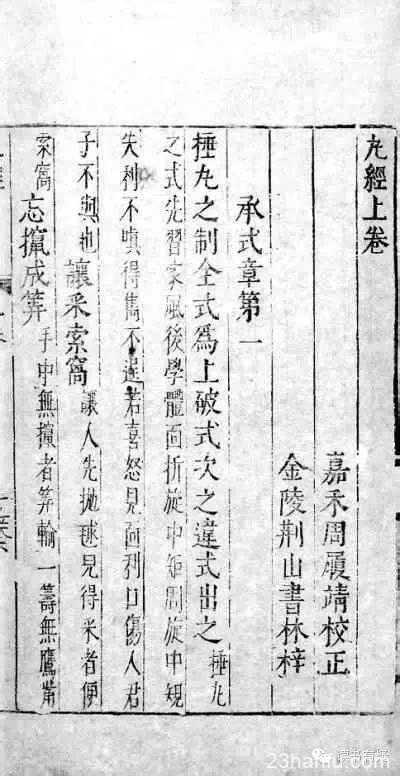 丸經上卷
嘉禾周履靖校正
金陵荆山書林梓
承式章第一
捶丸之制全式爲上破式次之違式出之捶丸
之式先習家風後學體面折旋中矩周旋中規
失利不嗔得雋不逞若喜怒見面利口傷人君
子不與也
讓采索窩讓人先拋毬見得采者便
索窩
忘䉤成筭手中無䉤者筭輸一籌無鷹觜
23hanfu.com